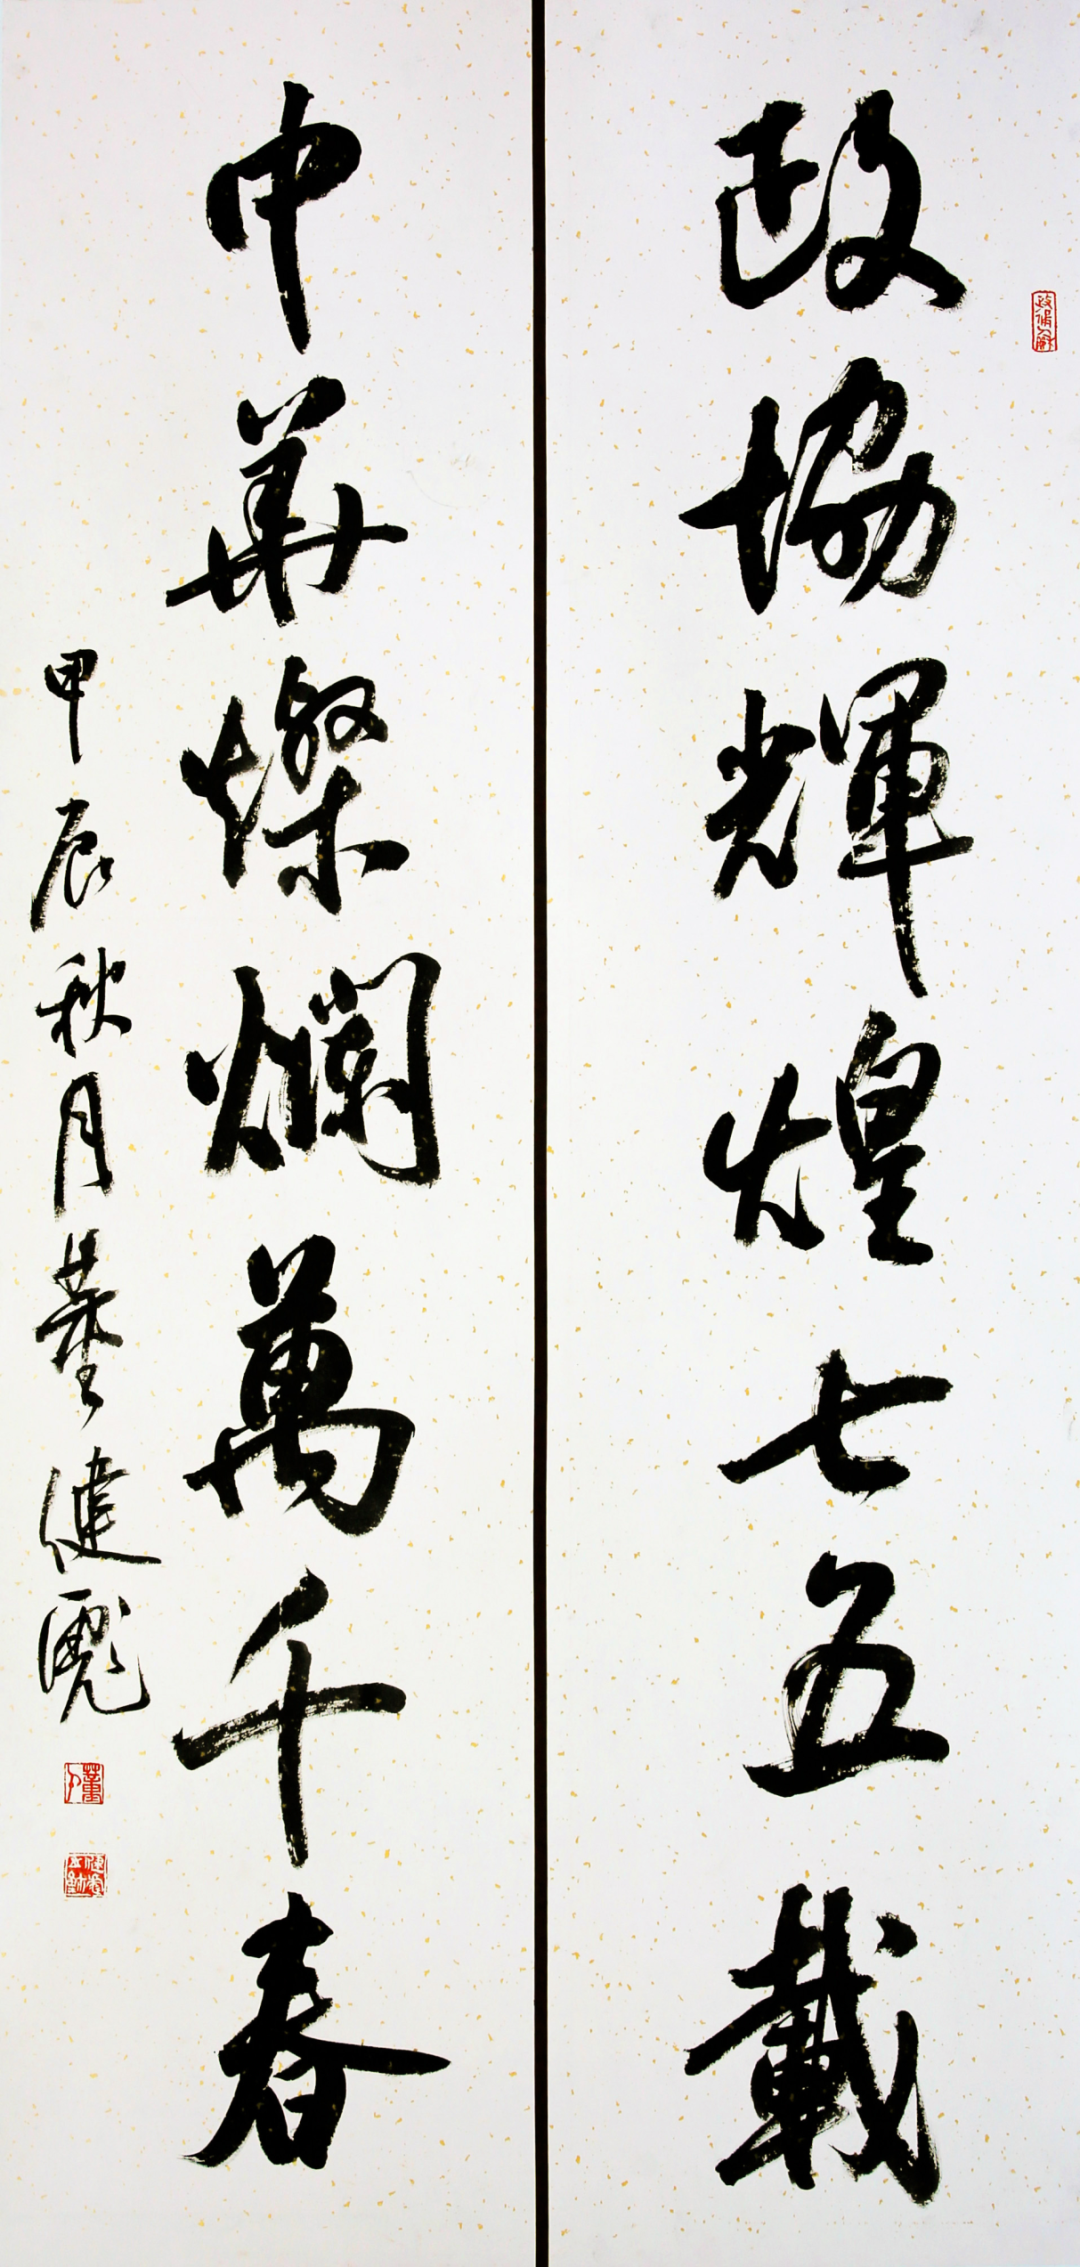 政協輝煌七五載
中華燦爛萬千春
甲辰秋月董健